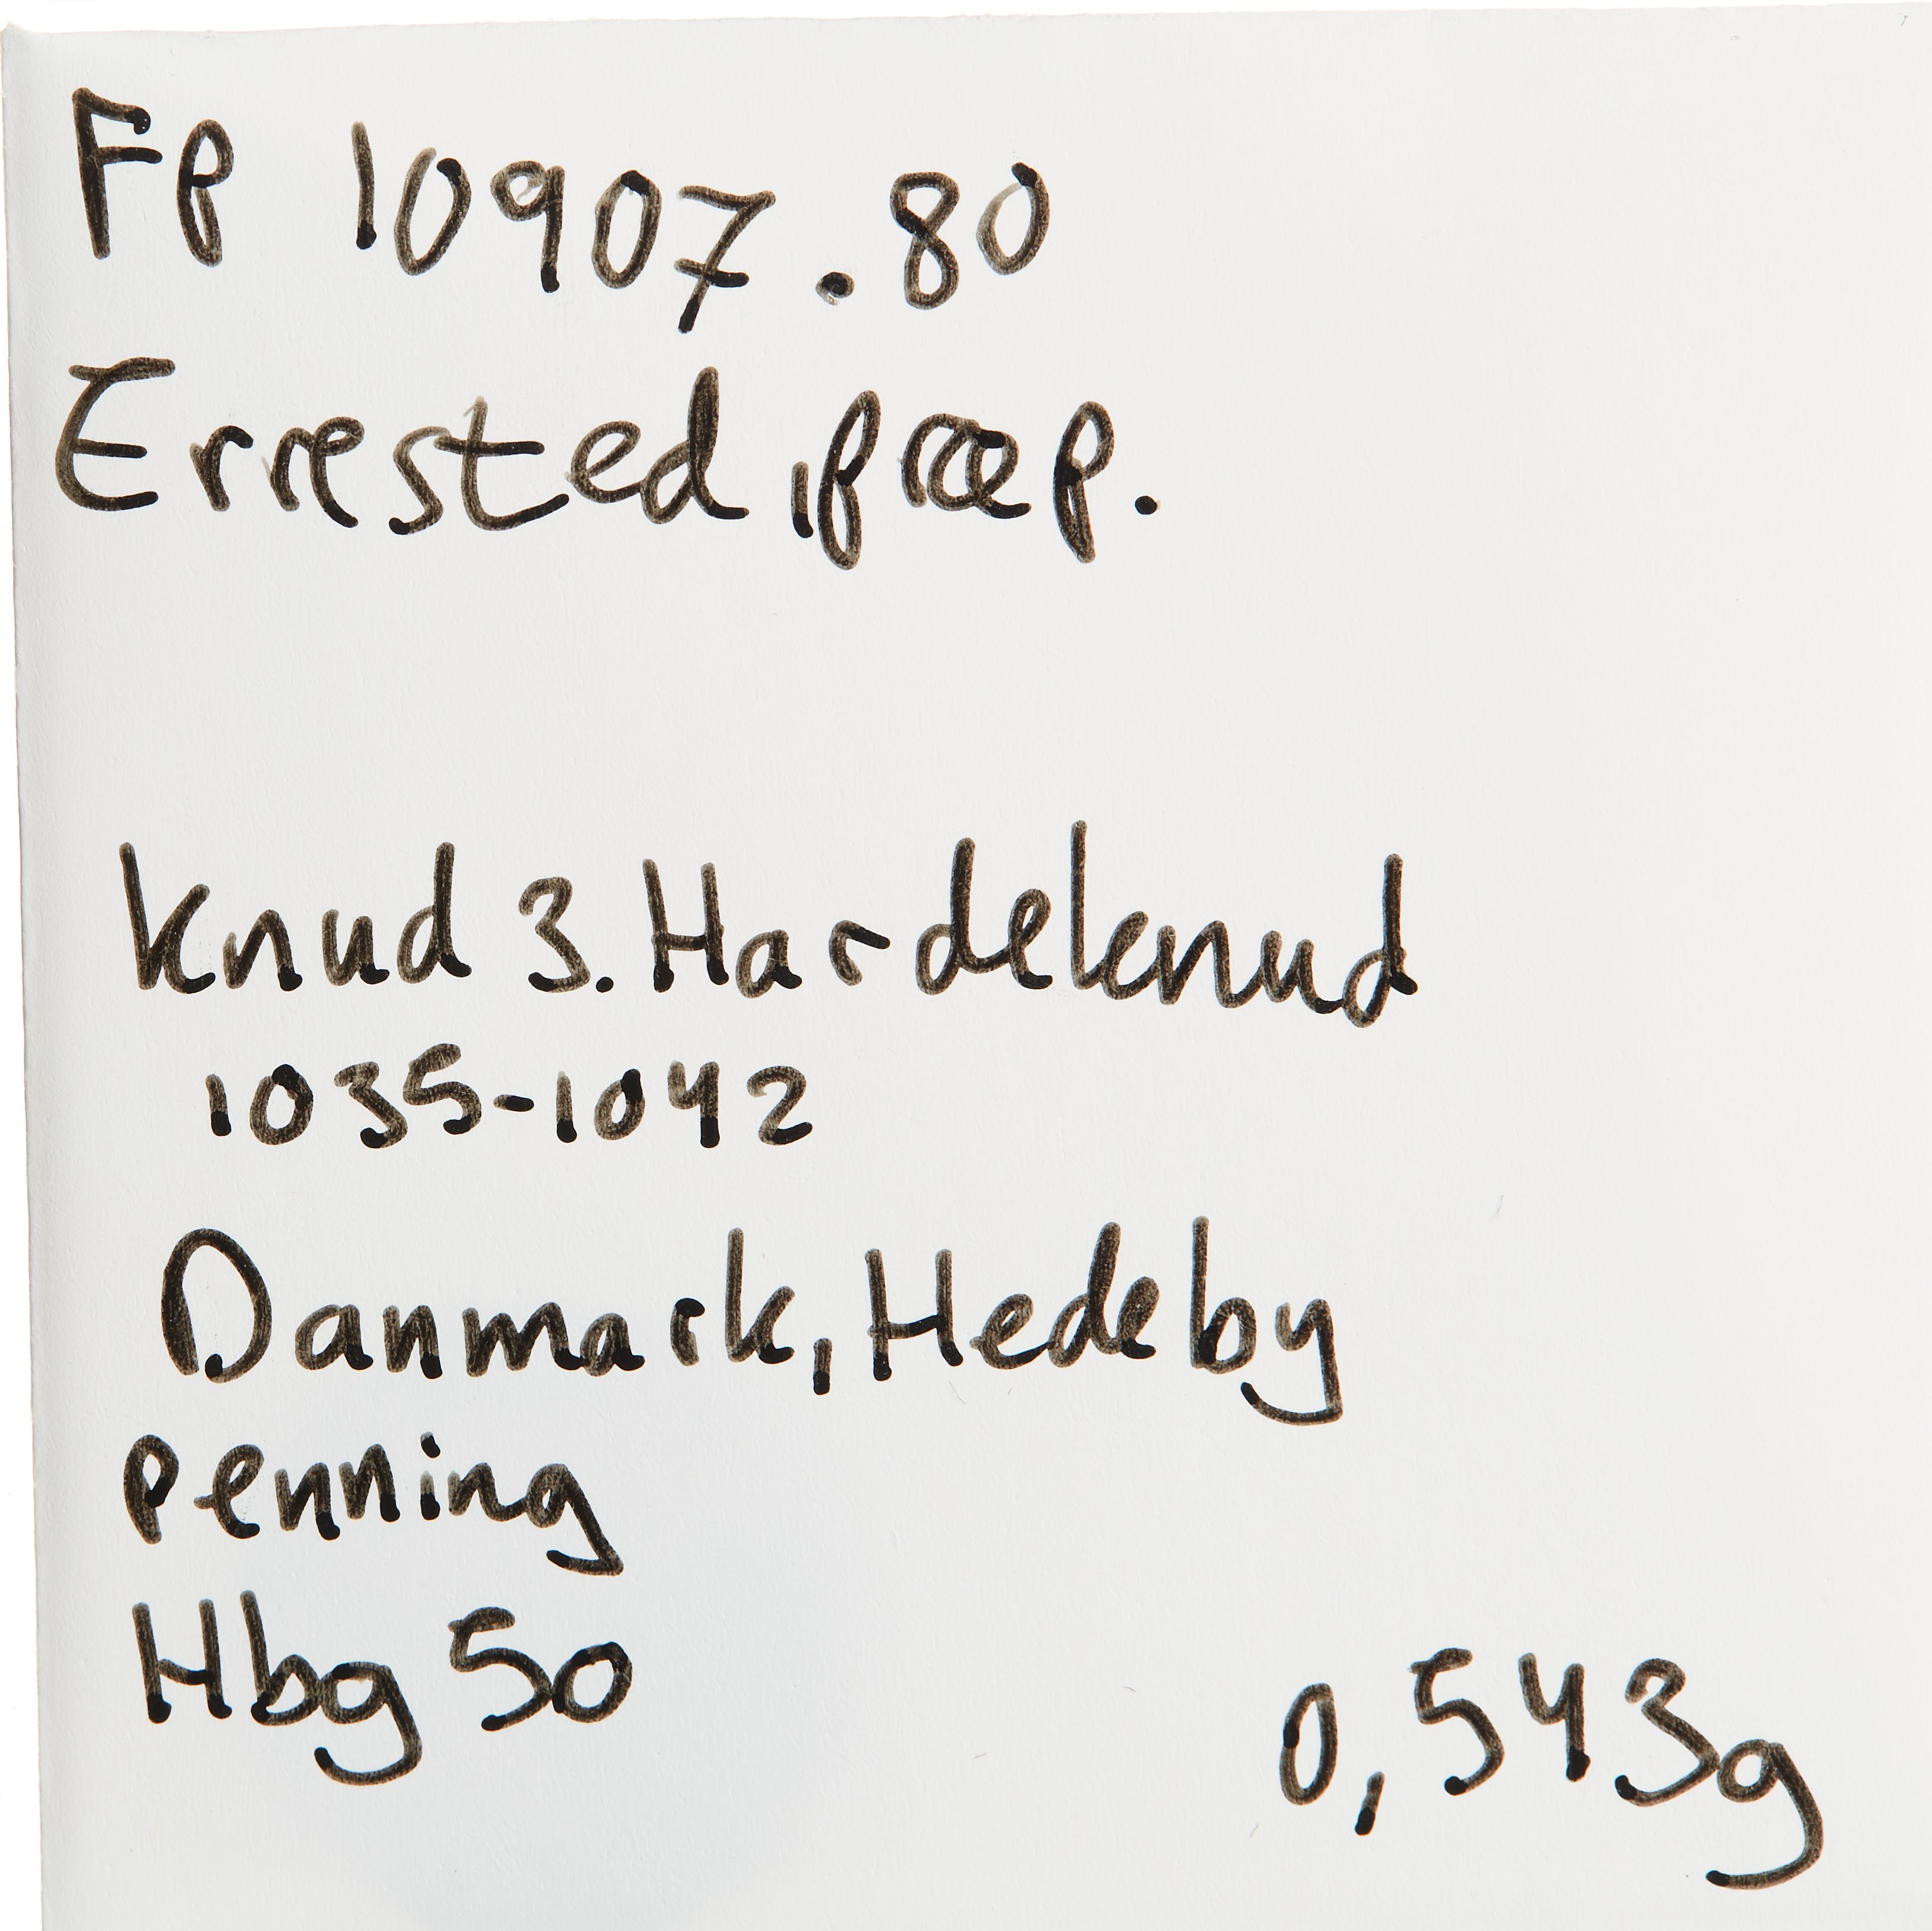 FP 10907.80
Errested, præp.
Knud 3. Hardeknud
1035-1042
Danmark, Hedeby
Penning
Hbg 50
0,543g